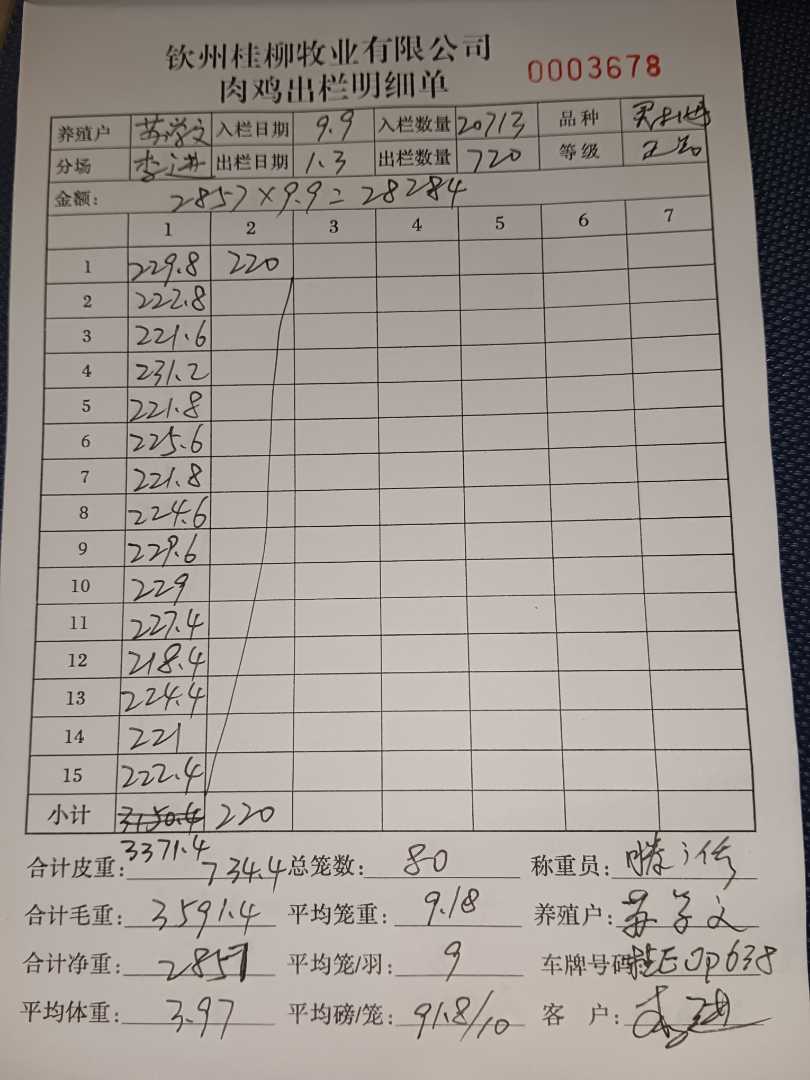 钦州桂柳牧业有限公司
肉鸡出栏明细单 0003678
养殖户 苏学文 入栏日期 9.9 入栏数量 20713 品种
分场 李进 出栏日期 1.3 出栏数量 720 等级 正品
金额: 2857×9.9=28284
1 2 3 4 5 6 7
1 229.8 220
2 222.8
3 221.6
4 231.2
5 221.8
6 225.6
7 221.8
8 224.6
9 229.6
10 229
11 227.4
12 218.4
13 224.4
14 221
15 222.4
小计 3150.4 220
3371.4
合计皮重: 734.4 总笼数: 80 称重员:
合计毛重: 3591.4 平均笼重: 9.18 养殖户: 苏学文
合计净重: 2857 平均笼/羽: 9 车牌号码: 桂E0p638
平均体重: 3.97 平均磅/笼: 91.8/10 客 户: